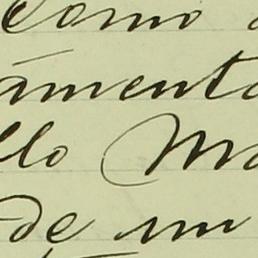 como
amento
llo Ma
de un